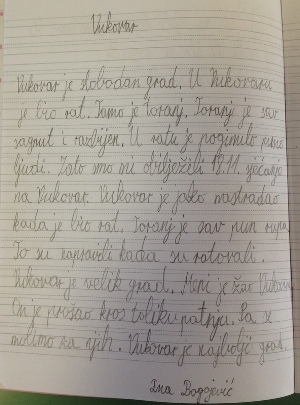 Vukovar
Vukovar je slobodan grad. U Vukovaru
je bio rat. Tamo je Toranj. Toranj je sav
zagnut i razbijen. U ratu je poginulo puno
ljudi. Zato smo mi obilježili 18.11. sjećanje
na Vukovar. Vukovar je jako nastradao
kada je bio rat. Toranj je sav pun rupa.
To su napravili kada su ratovali.
Vukovar je velik grad. Meni je žao Vukovar
On je prošao kroz toliku patnju. Pa se
molimo za njih. Vukovar je najbolji grad.
Ena Dogojević